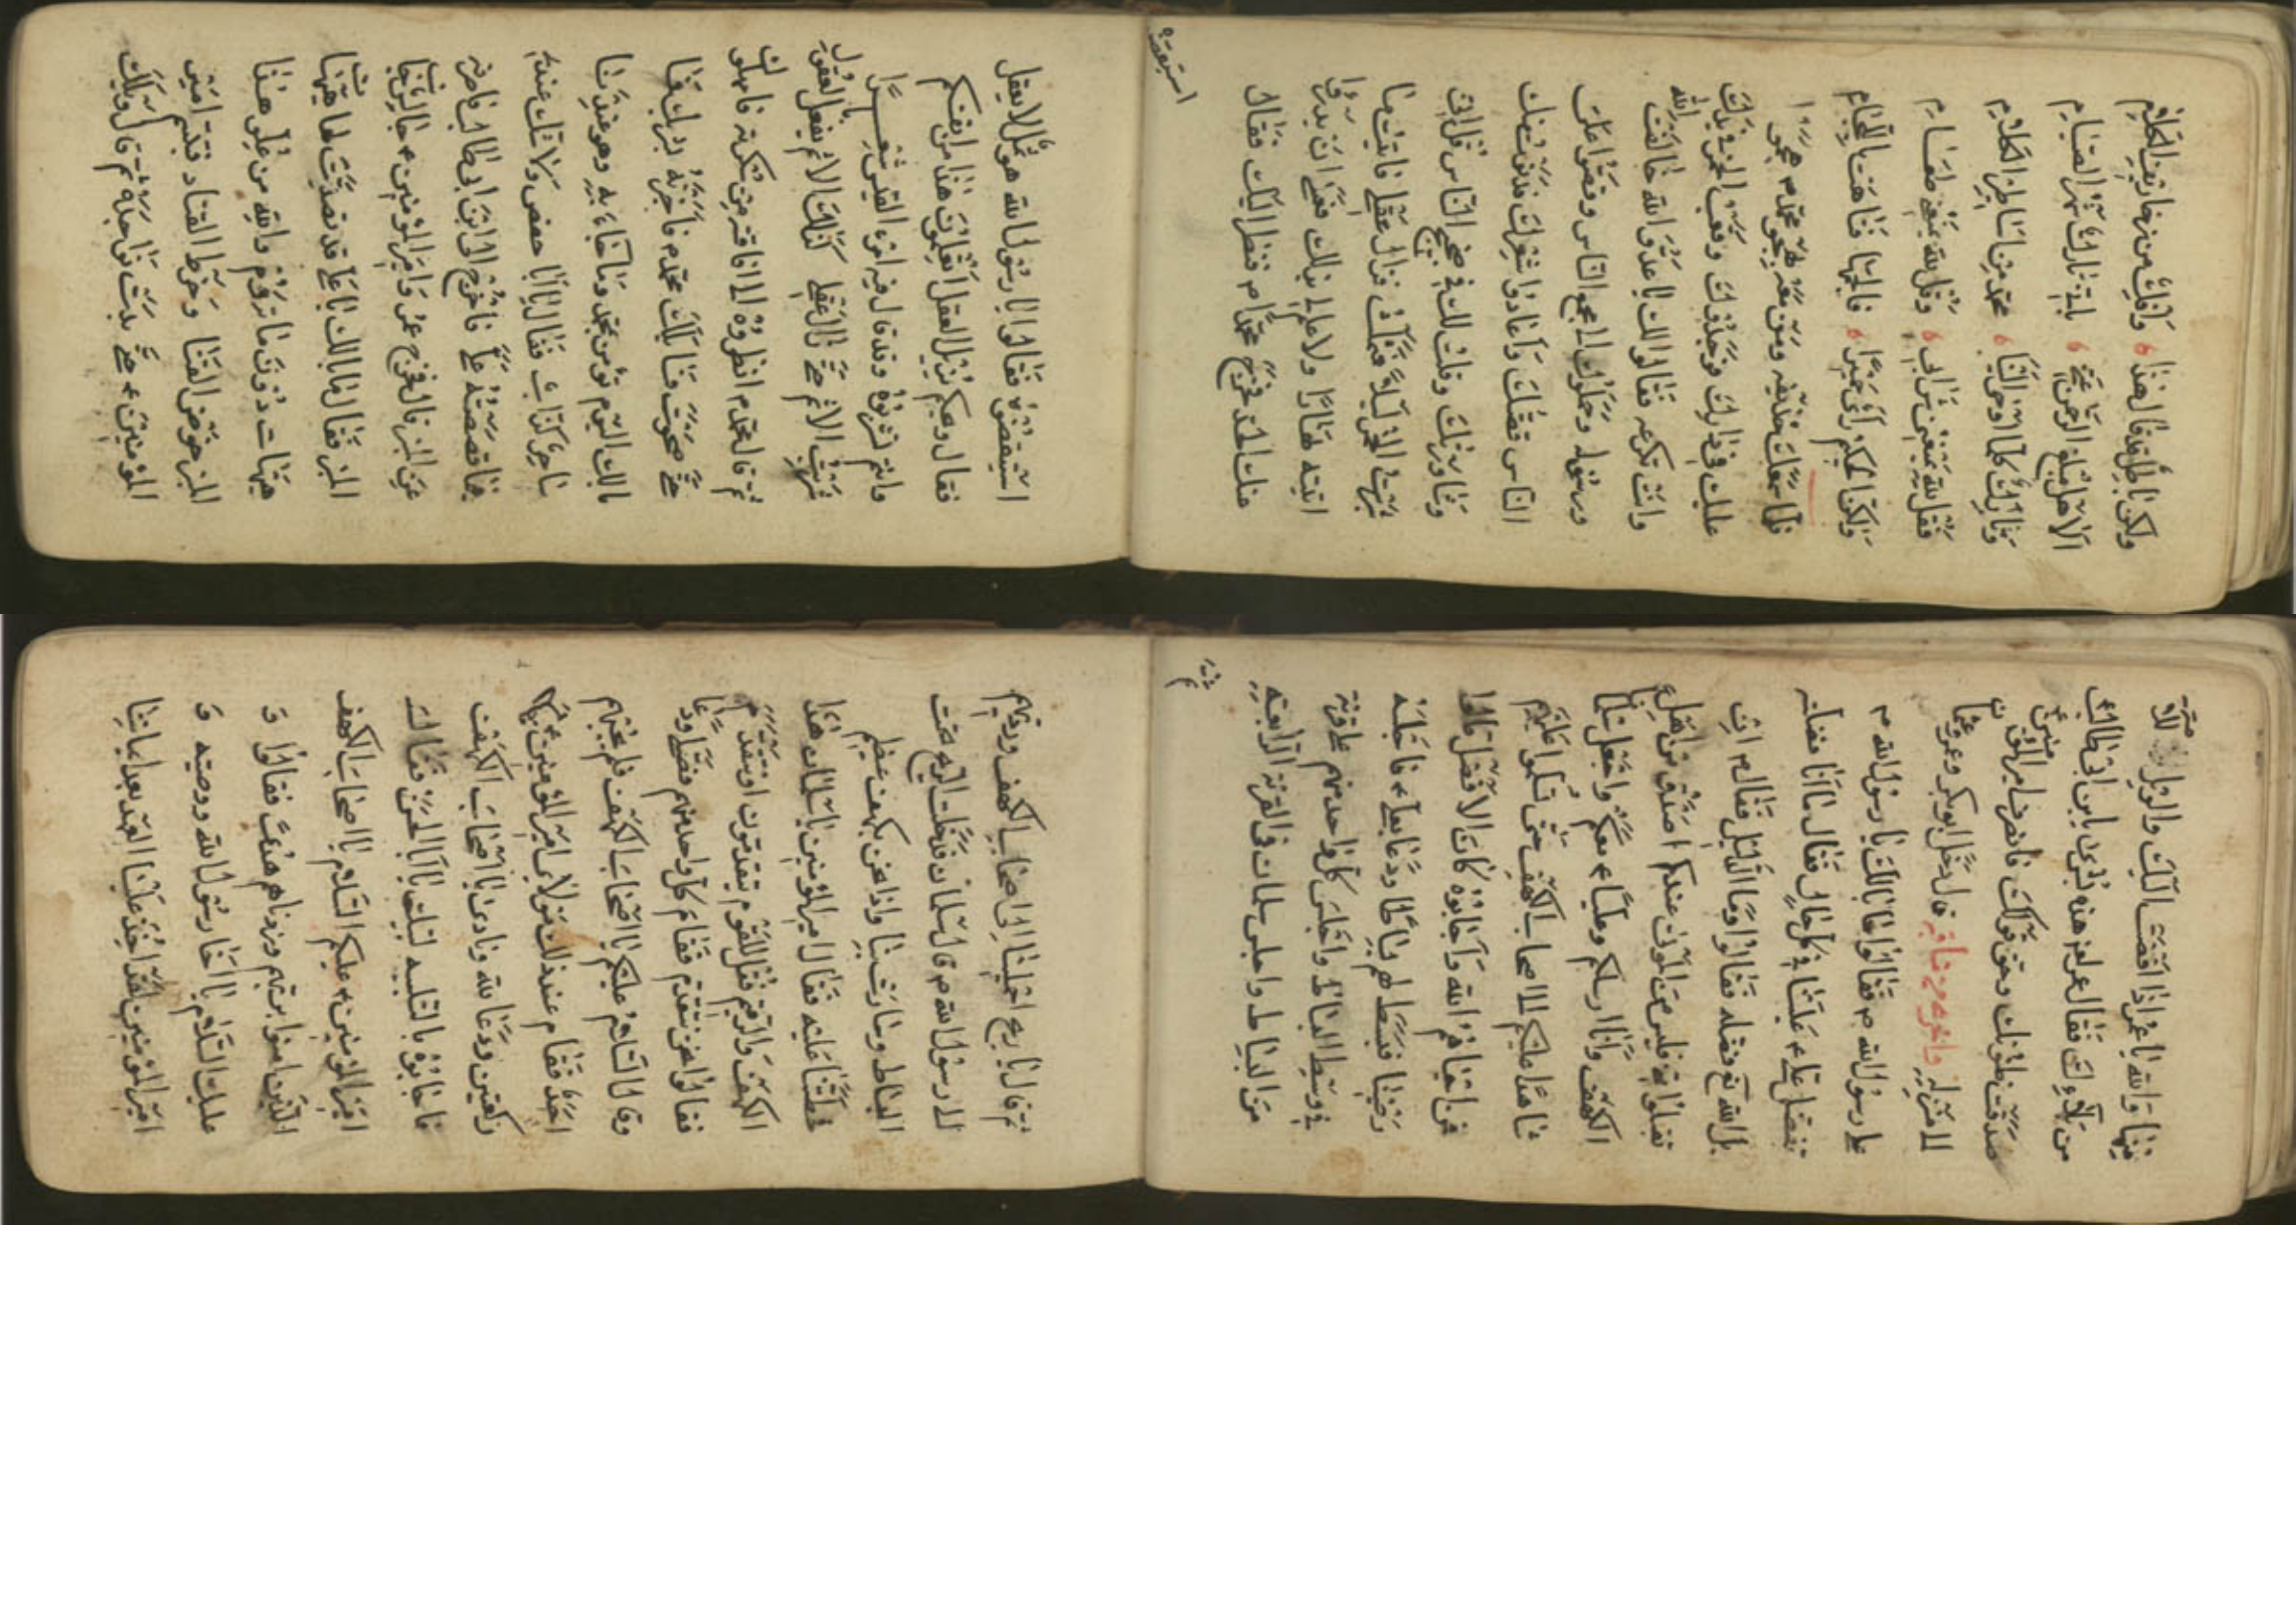 ولكن باطل قد قال هذا ، وافك من زخاريف الكلام
الا هل مبلغ الرحمن عني ، باني تارك شهر الصيام
وتارك كلما اوحى الينا ، محمد من اساطير الكلام
فقل لله يمنعني شرابي ، وقل لله يمنعني طعامي
ولكن الحكيم رأى حميرا ، فالجمها فتاهت باللجام
فلما سمعك حذيفه ومن معه تهجو محمد م هجموا
عليك في دارك فوجدوك وقعب الخمر في يدك
وانت تكرعه فقالوا لك يا عدو الله خالفت الله
ورسوله وحملوك الى مجمع الناس وقصوا عليك
الناس قصتك واعادوا شعرك فدنوت منك
وشاورتك وقلت لك في ضجيج الناس قل اني
شربت الخمر ليلا فثملت فزال عقلي فاتيت ما
اتيته نهارا ولا علم لي بذلك فعسى ان يدرؤا
عنك الحد فخرج محمد م فنظر اليك فقال
فقالوا يا رسول الله هو ثمل لا يعقل
فقال ويحكم يزيل العقل اتعلمون هذا من انفسكم
وانتم تشربوه وقد قال فيه امرء القيس شعرا
شربت الاثم حتى زال عقلي كذلك الاثم يفعل بالعقول
ثم قال محمد م انظروه الى افاقته من سكرته فامهلوك
حتى صحوت فسألك محمد م فاخبرته
مالك اليوم تؤمن بمحمد وما جاء به وهو عندنا
ساحر كذاب فقال يا ابا حفص ولا شك عندي
فيما قصصته علي فاخرج الى ابن ابي طالب فاصرفه
عن المنبر قال فخرج عمر وامير المؤمنين ع جالس تحت
المنبر فقال ما بالك يا علي قد تصديت لها هيهات
هيهات دون ما تروم والله من علو هذا
المنبر خوض القنا وخرط القتاد فتبسم امير
المؤمنين ع حتى بدت نواجذه ثم قال ويلك
منها والله يا عمر اذا افضت اليك والويل للامة
من بلاءك فقال عمر هذه بشرى يا ابن ابي طالب
صدقت ظنونك وحق قولك فانصرف امير المؤمنين ع
الى منزله واخرى من مناقبه قال دخل ابو بكر وعمر وعثمان
على رسول الله م فقالوا ما بالك يا رسول الله م
تفضل علي ع علينا في كل حال فقال ما انا فضلته
بل الله تع فضله فقالوا وما الدليل فقال م اذا لم
تقبلوا مني فليس من الموت عندكم اصدق من اهل
الكهف وانا ارسلكم وعليا ع معكم واجعل سلمان
شاهدا عليكم الى اصحاب الكهف حتى تسلموا عليهم
فمن احياهم الله واجابوه كان الافضل قالوا
رضينا فبسط لهم بساطا ودعا بعلي ع فاجلسه
في وسط البساط واجلس كل واحد منهم على قرنة
من البساط واجلس سلمان في القرنة الرابعة
ثم
ثم قال يا ريح احملينا الى اصحاب الكهف ورديهم
الى رسول الله م قال سلمان فدخلت الريح تحت
البساط وسارت بنا واذا نحن بكهف عظيم
فحطتنا عليه فقال امير المؤمنين يا سلمان هذا
الكهف والرقيم فقل للقوم يتقدمون او نتقدم
فقالوا نحن نتقدم فقام كل واحد منهم فصلى ودعا
وقال السلام عليكم يا اصحاب الكهف فلم يجبهم
احد فقام عند ذلك مولاي امير المؤمنين ع
ركعتين ودعا الله ونادى يا اصحاب الكهف
فاجابوه بالتلبيه لبيك يا ابا الحسن فقال
امير المؤمنين ع عليكم السلام يا اصحاب الكهف
الذين امنوا بربهم وزدناهم هدى فقالوا و
عليك السلام يا اخا رسول الله ووصيه و
امير المؤمنين لقد اخذ علينا العهد بعد ايماننا